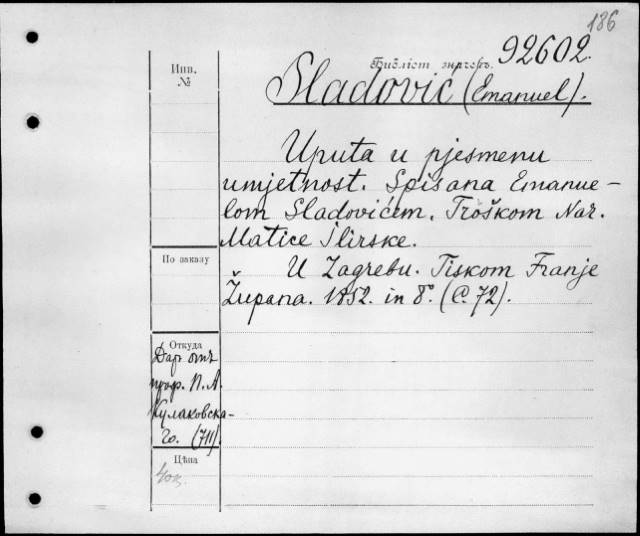 186
92602.
Инв.
№
Sladović (Emanuel).
Uputa u pjesmenu
umjetnost. Spisana Emanue-
lom Sladovićem. Troškom Nar.
Matice Ilirske.
По заказу
U Zagrebu. Tiskom Franje
Župana. 1852. in 8°. (С. 72).
Откуда
Даръ отъ
проф. П. А.
Кулаковска-
го. (711).
Цѣна